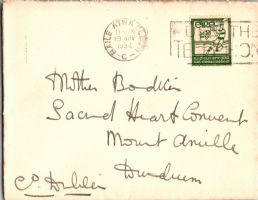 BAILE ATHA CLIATH
19 NOV
1934
C
THE
TE
Mother Bodkin
Sacred Heart Convent
Mount Anville
Dundrum
Co. Dublin